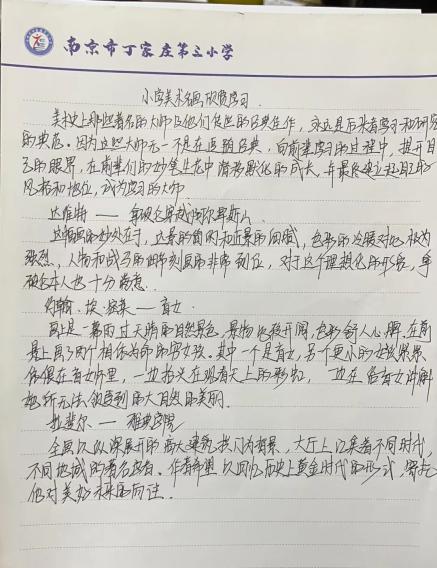 南京市丁家庄第三小学
小学美术名画欣赏学习.
美术史上那些著名的大师及他们传世的经典佳作,永远是后来者学习和研究
的典范。因为这些大师无一不是在追随经典,向前辈学习的过程中,提升自
己的眼界,在前辈们的妙笔生花中潜移默化的成长,并最终建立起自己的
风格和地位,成为学习的大师
达维特——拿破仑穿越阿尔卑斯山
这幅画的妙处在于,远景的简约和近景的细腻,色彩的冷暖对比极为
强烈,人物和战马的细节刻画的非常到位,对于这个理想化的形容,拿
破仑本人也十分满意.
约翰·埃·密莱——盲女
画上是一幕雨过天晴的自然景色,景物比较开阔,色彩舒人心脾.在前
景上画了两个相依为命的穷女孩。其中一个是盲女,另个更小的女孩紧紧
依偎在盲女怀里,一边抬头在观看天上的彩虹,一边在给盲女讲解
她所无法领受到的大自然的美丽.
拉斐尔——雅典学院
全画以纵深展开的高大建筑拱门为背景,大厅上汇集着不同时代,
不同地域的著名学者.作者希望以回忆历史上黄金时代的形式,寄托
他对美好未来的向往.